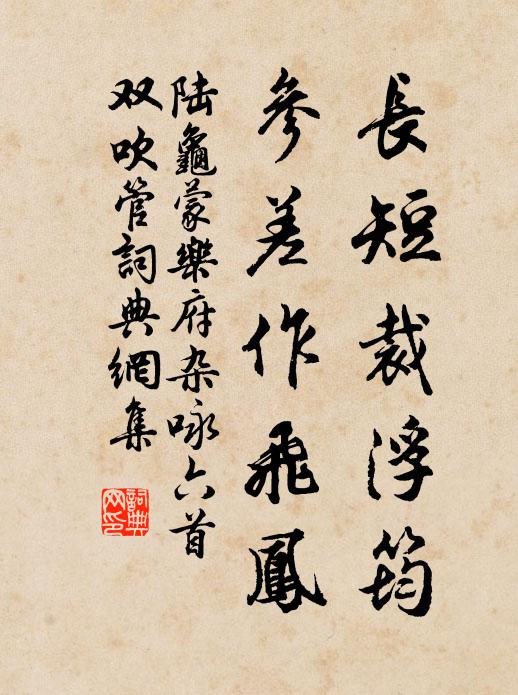 長短裁浮筠
參差作飛鳳
陆龜蒙樂府杂咏六首
双吹管詞典網集
詞典网印